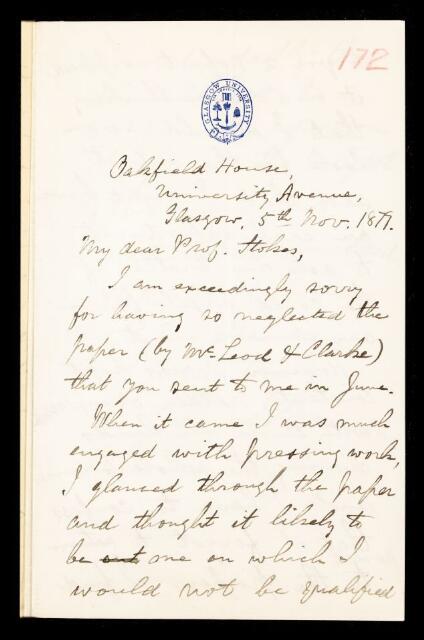 172
GLASGOW UNIVERSITY
Oakfield House,
University Avenue,
Glasgow, 5th Nov. 1879.
My dear Prof. Stokes,
I am exceedingly sorry
for having so neglected the
paper (by McLeod & Clarke)
that you sent to me in June.
When it came I was much
engaged with pressing work,
I glanced through the paper
and thought it likely to
be one on which I
would not be qualified